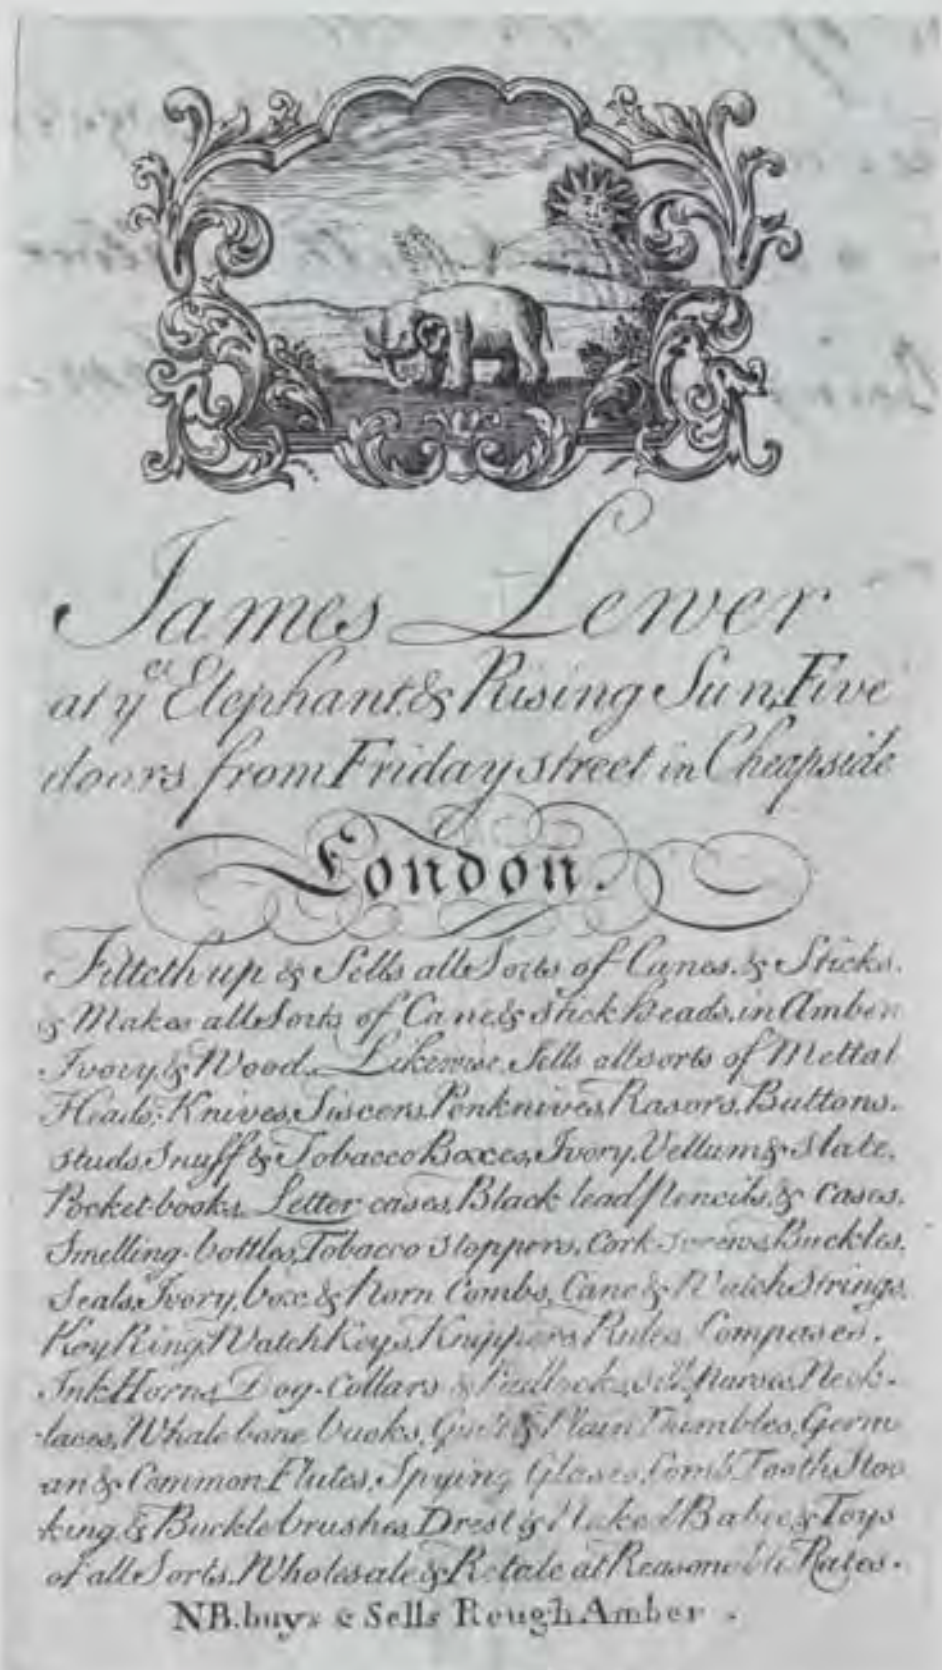 James Lewer
at yͤ Elephant & Rising Sun, Five
doors from Friday street in Cheapside
London.
Fitteth up & Sells all Sorts of Canes & Sticks.
& Makes all Sorts of Cane & stick heads, in Amber
Ivory, & Wood. Likewise Sells all sorts of Mettal
Heads; Knives, Siscers, Penknives, Rasors, Buttons.
studs, Snuff & Tobacco Boxes, Ivory, Vellum & Slate,
Pocket-books, Letter cases, Black lead pencils, & cases.
Smelling-bottles, Tobacco stoppers, Cork-screws, Buckles,
Seals, Ivory, box & Horn Combs, Cane & Watch Strings,
Key Ring, Watch Keys, Knippers, Rules Compases.
Ink Horns, Dog-Collars & Padlocks, Purses, Neck-
laces, Whale bone busks, & Plain Thimbles, Germ
an & Common Flutes, Spying Glases, Comb, Tooth, Stoc
king, & Buckle brushes, Drest & Naked Babie & Toys
of all Sorts. Wholesale & Retale at Reasonable Rates.
NB. buys & Sells Rough Amber.